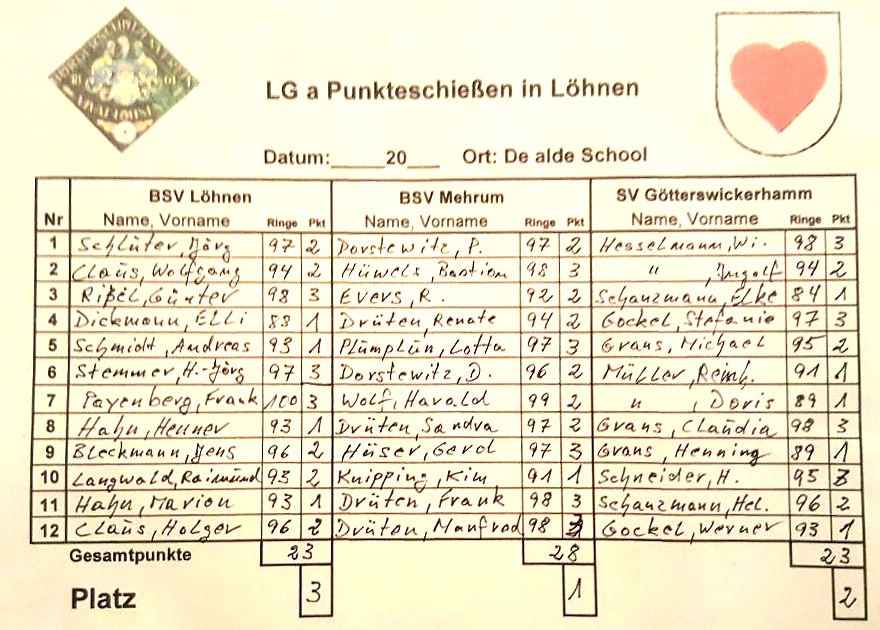 LG a Punkteschießen in Löhnen
Datum:_____20___ Ort: De alde School
BSV Löhnen BSV Mehrum SV Götterswickerhamm
Nr Name, Vorname Ringe Pkt Name, Vorname Ringe Pkt Name, Vorname Ringe Pkt
1 Schlüter, Jörg 97 2 Dorstewitz, P. 97 2 Hesselmann, Wi. 98 3
2 Claus, Wolfgang 94 2 Hüwels, Bastian 98 3 " , Ingolf 94 2
3 Rißel, Günter 98 3 Evers, R. 92 2 Schanzmann, Elke 84 1
4 Dickmann, Elli 88 1 Drüten, Renate 94 2 Gockel, Stefanie 97 3
5 Schmidt, Andreas 93 1 Plümplün, Lotta 97 3 Grans, Michael 95 2
6 Stemmer, H.-Jörg 97 3 Dorstewitz, D. 96 2 Müller, Reinh. 91 1
7 Payenberg, Frank 100 3 Wolf, Harald 99 2 " , Doris 89 1
8 Hahn, Henner 93 1 Drüten, Sandra 97 2 Grans, Claudia 98 3
9 Bleckmann, Jens 96 2 Hüser, Gerd 97 3 Grans, Henning 89 1
10 Langwald, Raimund 93 2 Knipping, Kim 91 1 Schneider, H. 95
11 Hahn, Marion 93 1 Drüten, Frank 98 3 Schanzmann, Hel. 96 2
12 Claus, Holger 96 2 Drüten, Manfred 98 Gockel, Werner 93 1
Gesamtpunkte 23 28 23
Platz 3 1 2